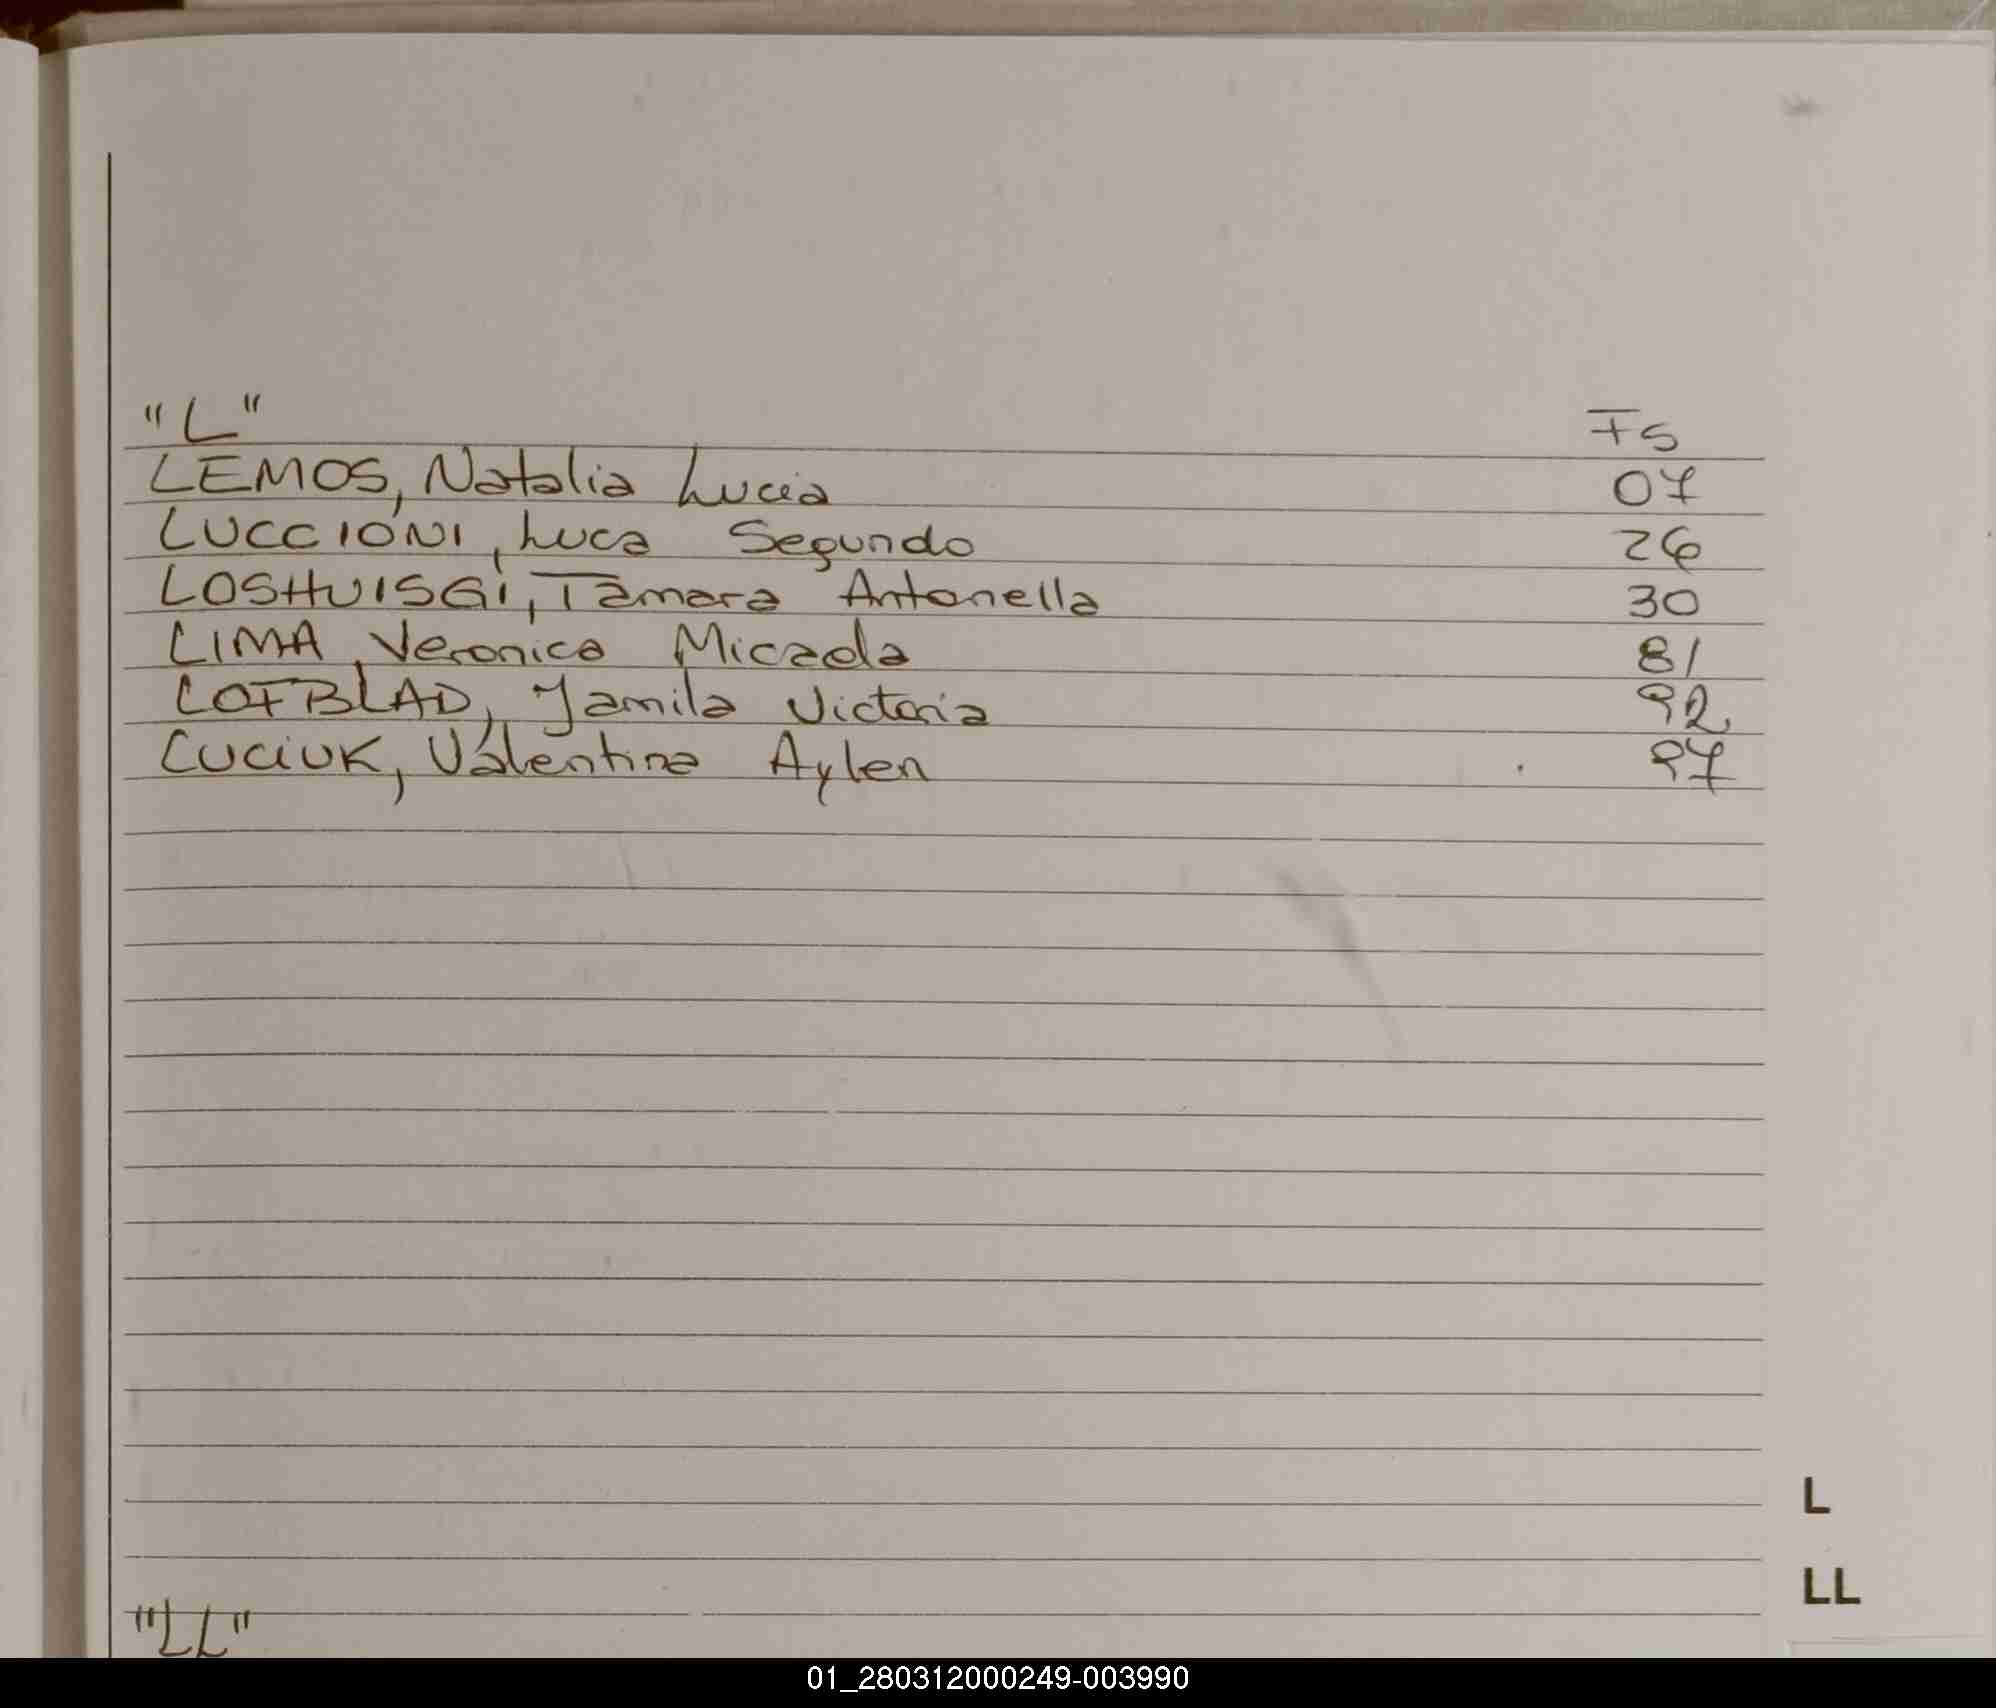 "L" Fs
LEMOS, Natalia Lucia 07
LUCCIONI, Luca Segundo 26
LOSHUISGI, Tamara Antonella 30
LIMA, Veronica Micaela 81
LOFBLAD, Jamila Victoria 92
LUCIUK, Valentina Aylen 97
L
LL
"LL"
01_280312000249-003990